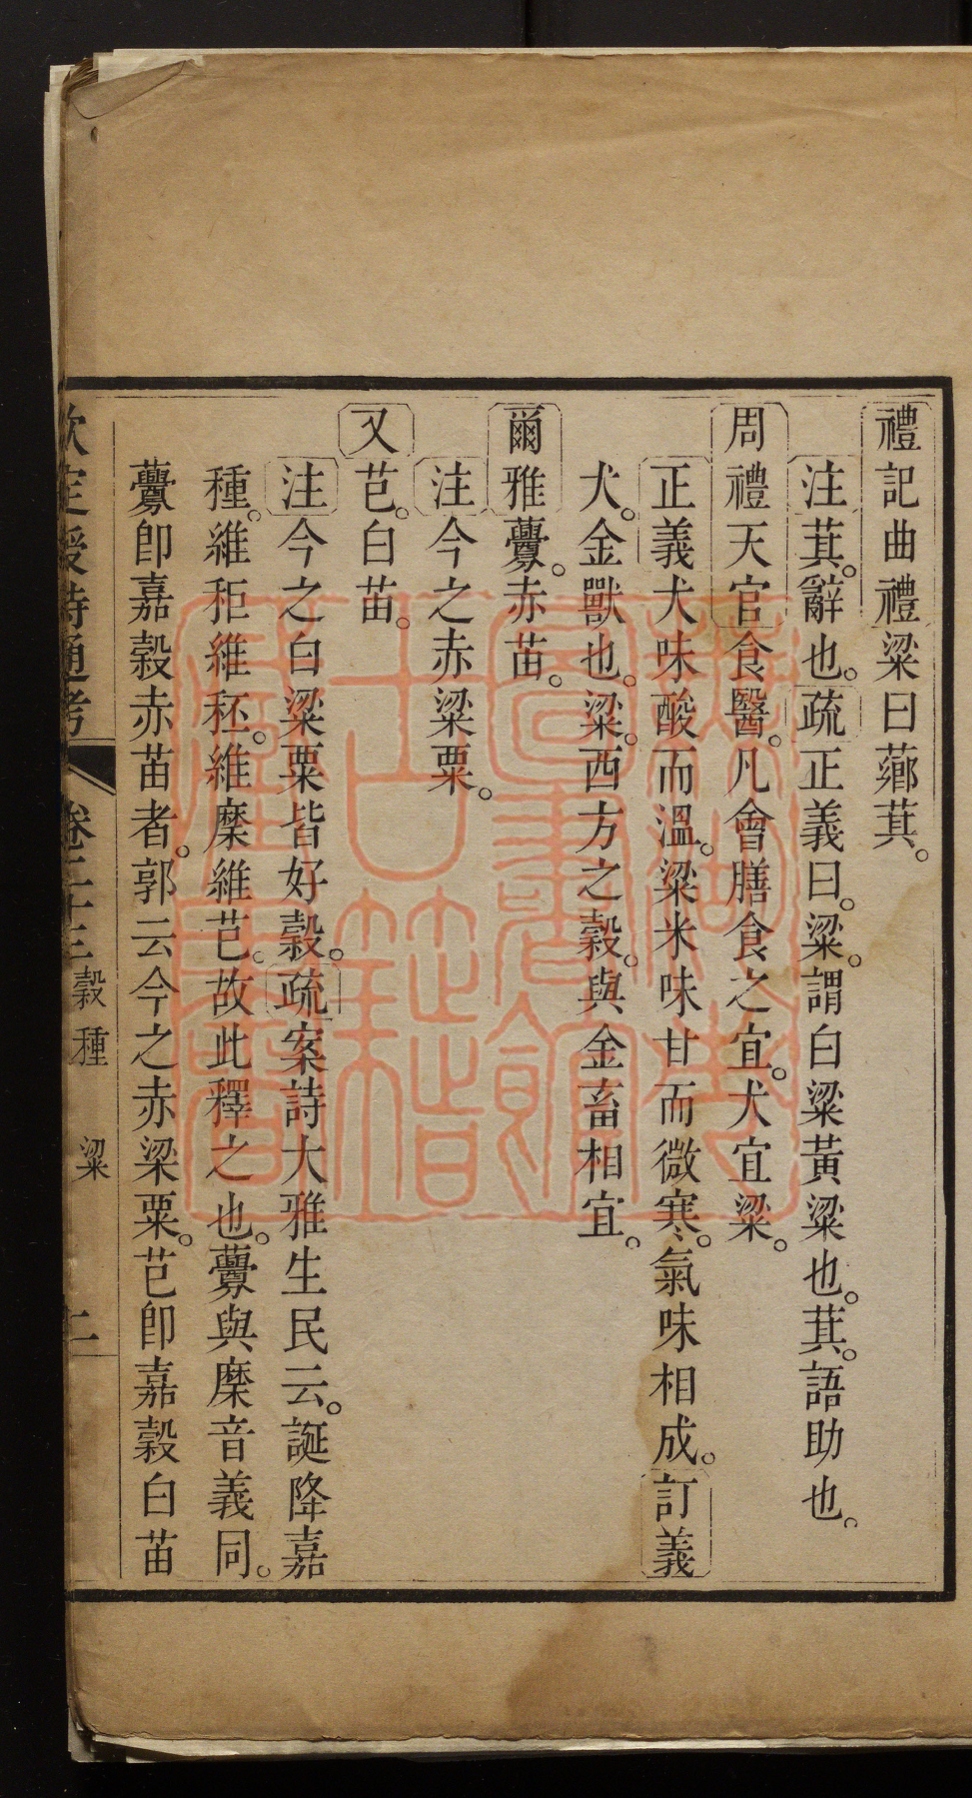 禮記曲禮粱曰薌萁。
注萁。辭也。疏正義曰。粱。謂白粱黃粱也。萁。語助也。
周禮天官食醫。凡會膳食之宜。犬宜粱。
正義犬味酸而溫。粱米味甘而微寒。氣味相成。訂義
犬。金獸也。粱。西方之穀。與金畜相宜。
爾雅虋。赤苗。
注今之赤粱粟。
又芑。白苗。
注今之白粱粟皆好穀。疏案詩大雅生民云。誕降嘉
種。維秬維秠。維穈維芑。故此釋之也。虋與穈音義同。
虋卽嘉穀赤苗者。郭云今之赤梁粟。芑卽嘉穀白苗
欽定授時通考 卷二十三 穀種 粱 二